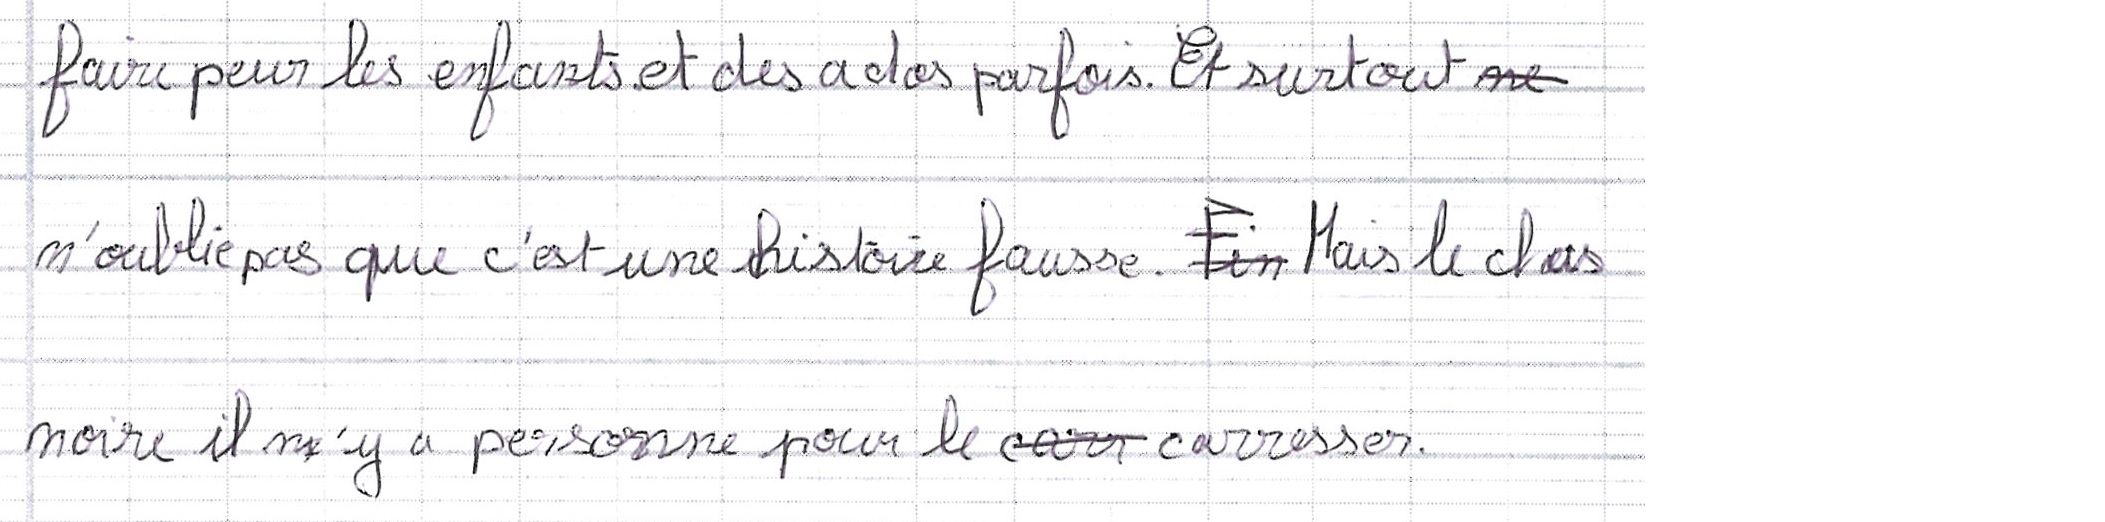 faire peur les enfants et des ados parfois. Et surtout ne
n'oublie pas que c'est une histoire fausse. Fin Mais le chas
noire il n'y a personne pour le carr carresser.